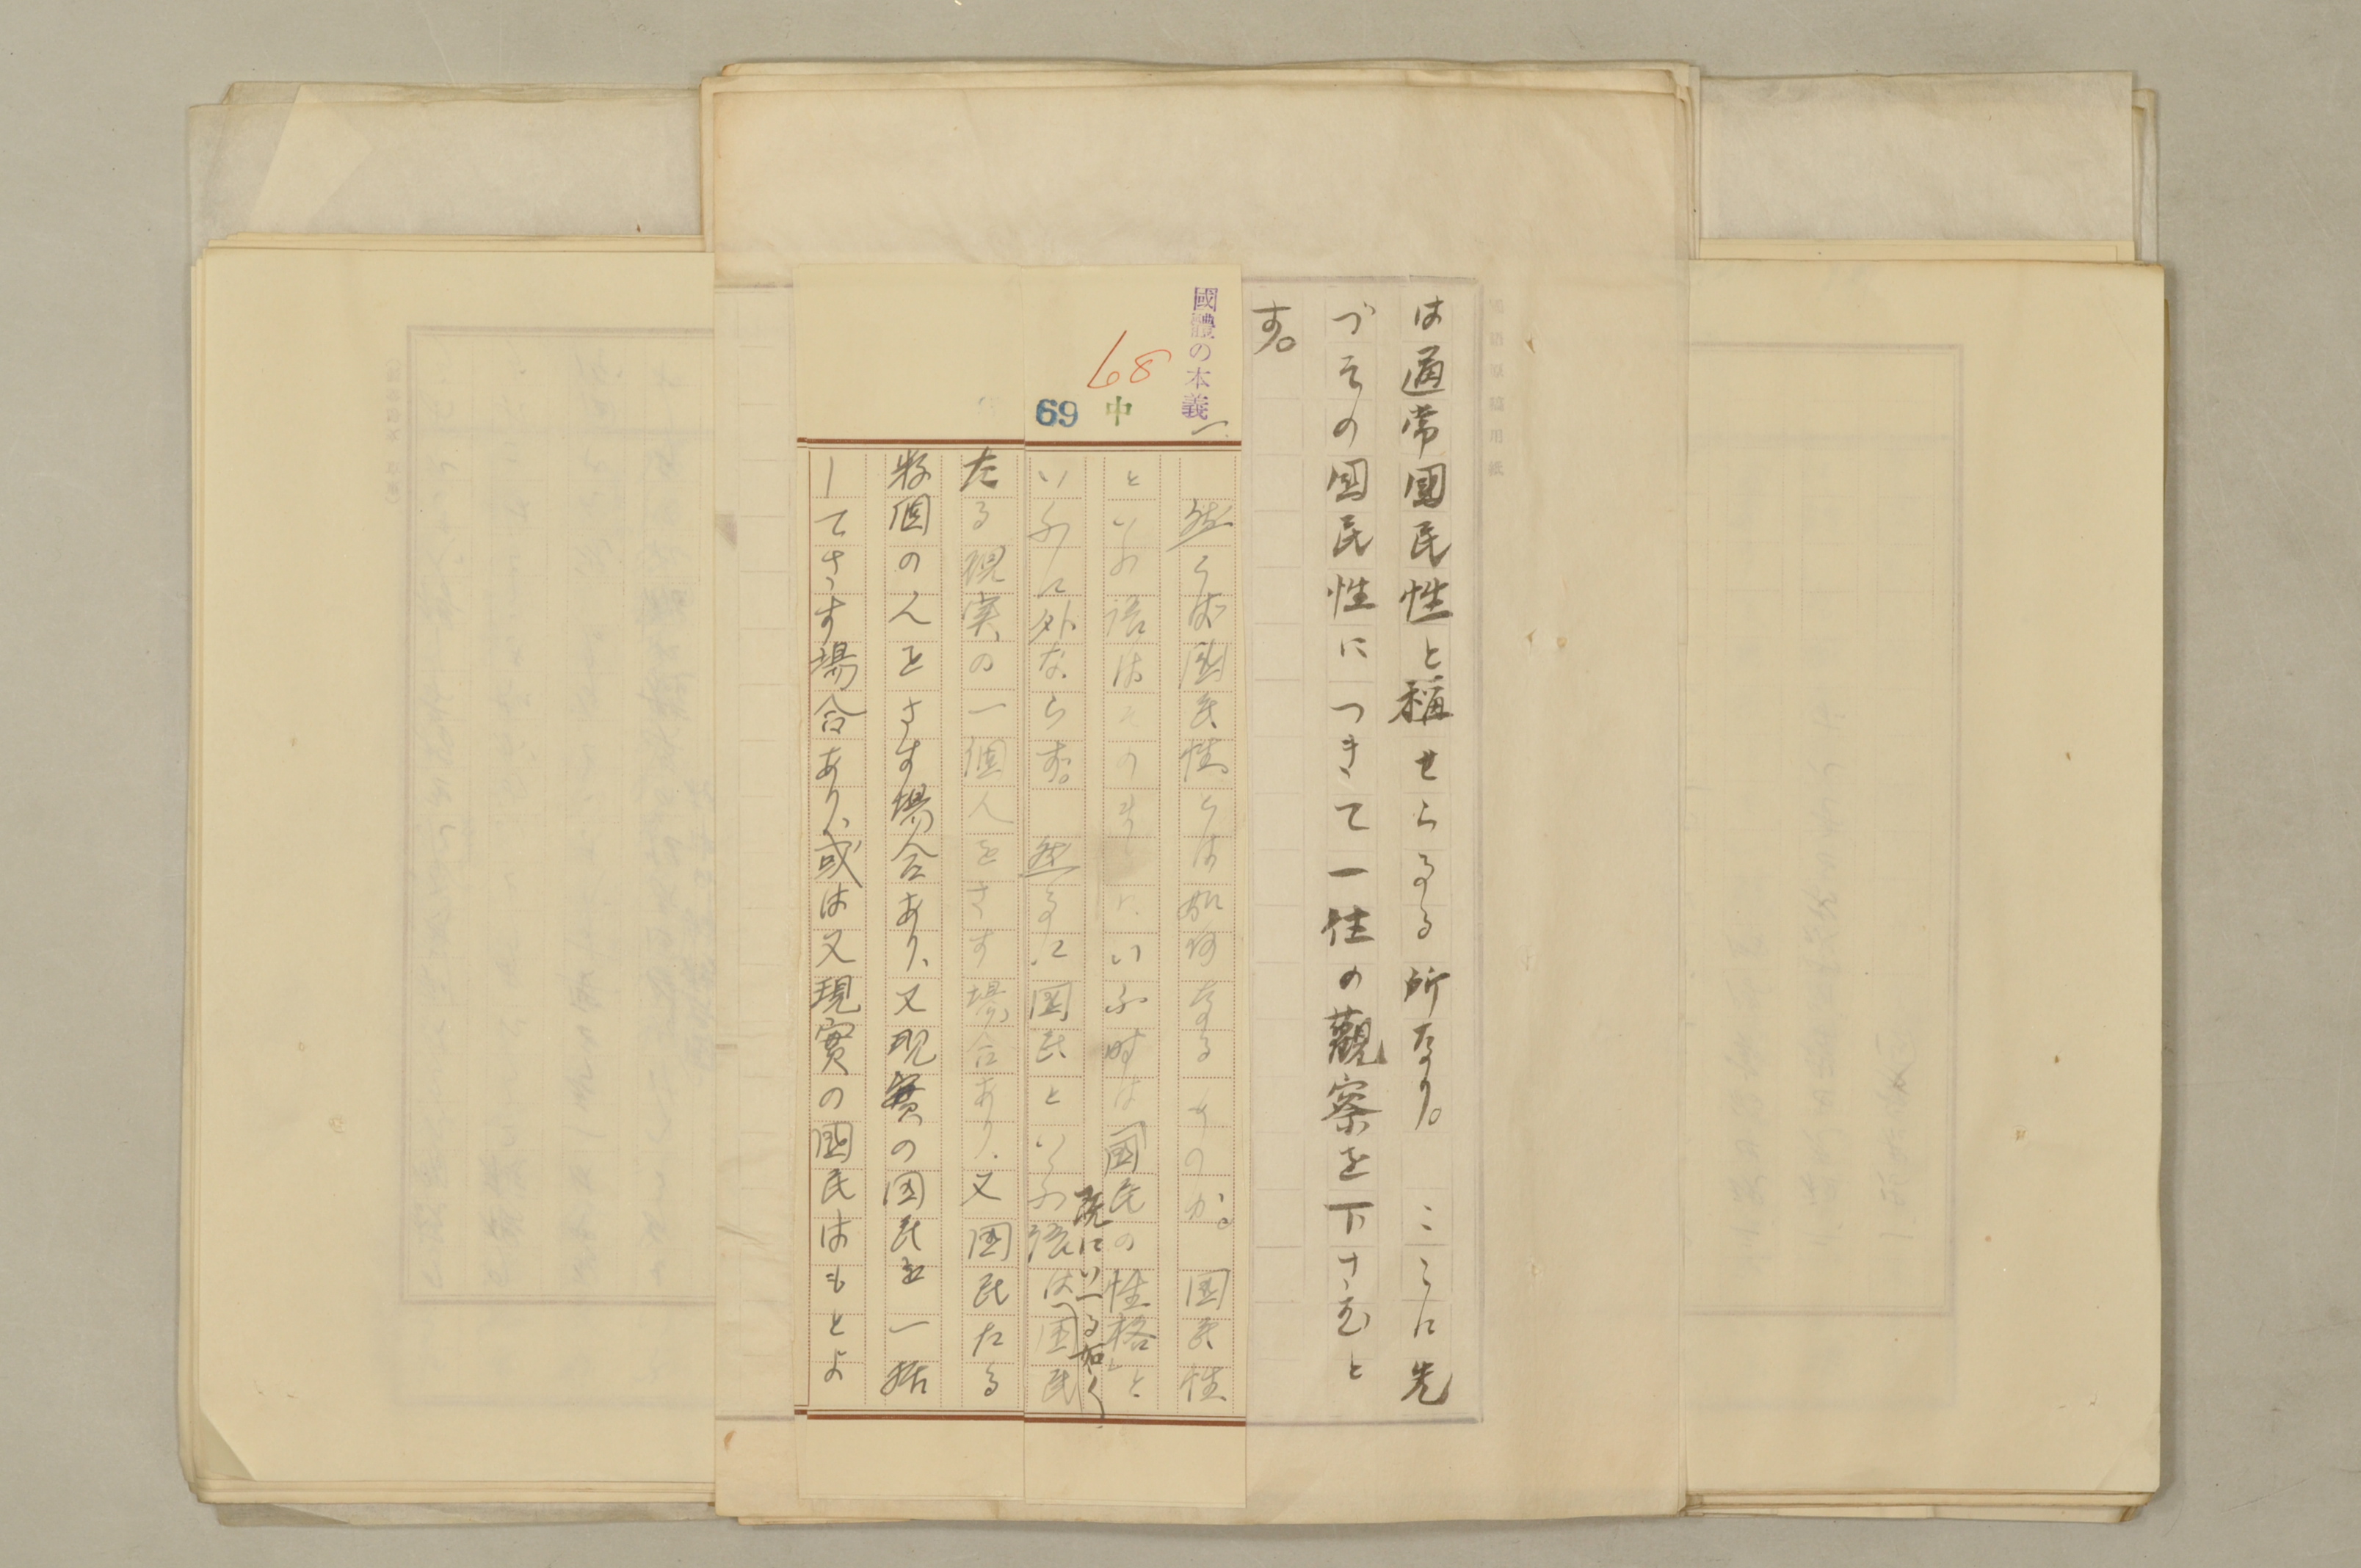 は通常國民性と稱せらるる所なり。　ここに先
づその国民性につきて一往の觀察を下さむと
す。
國體の本義一
68
中
69
然らば國民性とは如何なるものか。国民性
といふ語は
いふ時は「国民の性格」と
既にいへる如く、
いふに外ならず。　然るに国民といふ語は国民
たる現実の一個人をさす場合あり、又国民たる
数個の人をさす場合あり、又現實の国民を一括
してさす場合あり、或は又現實の國民はもとよ